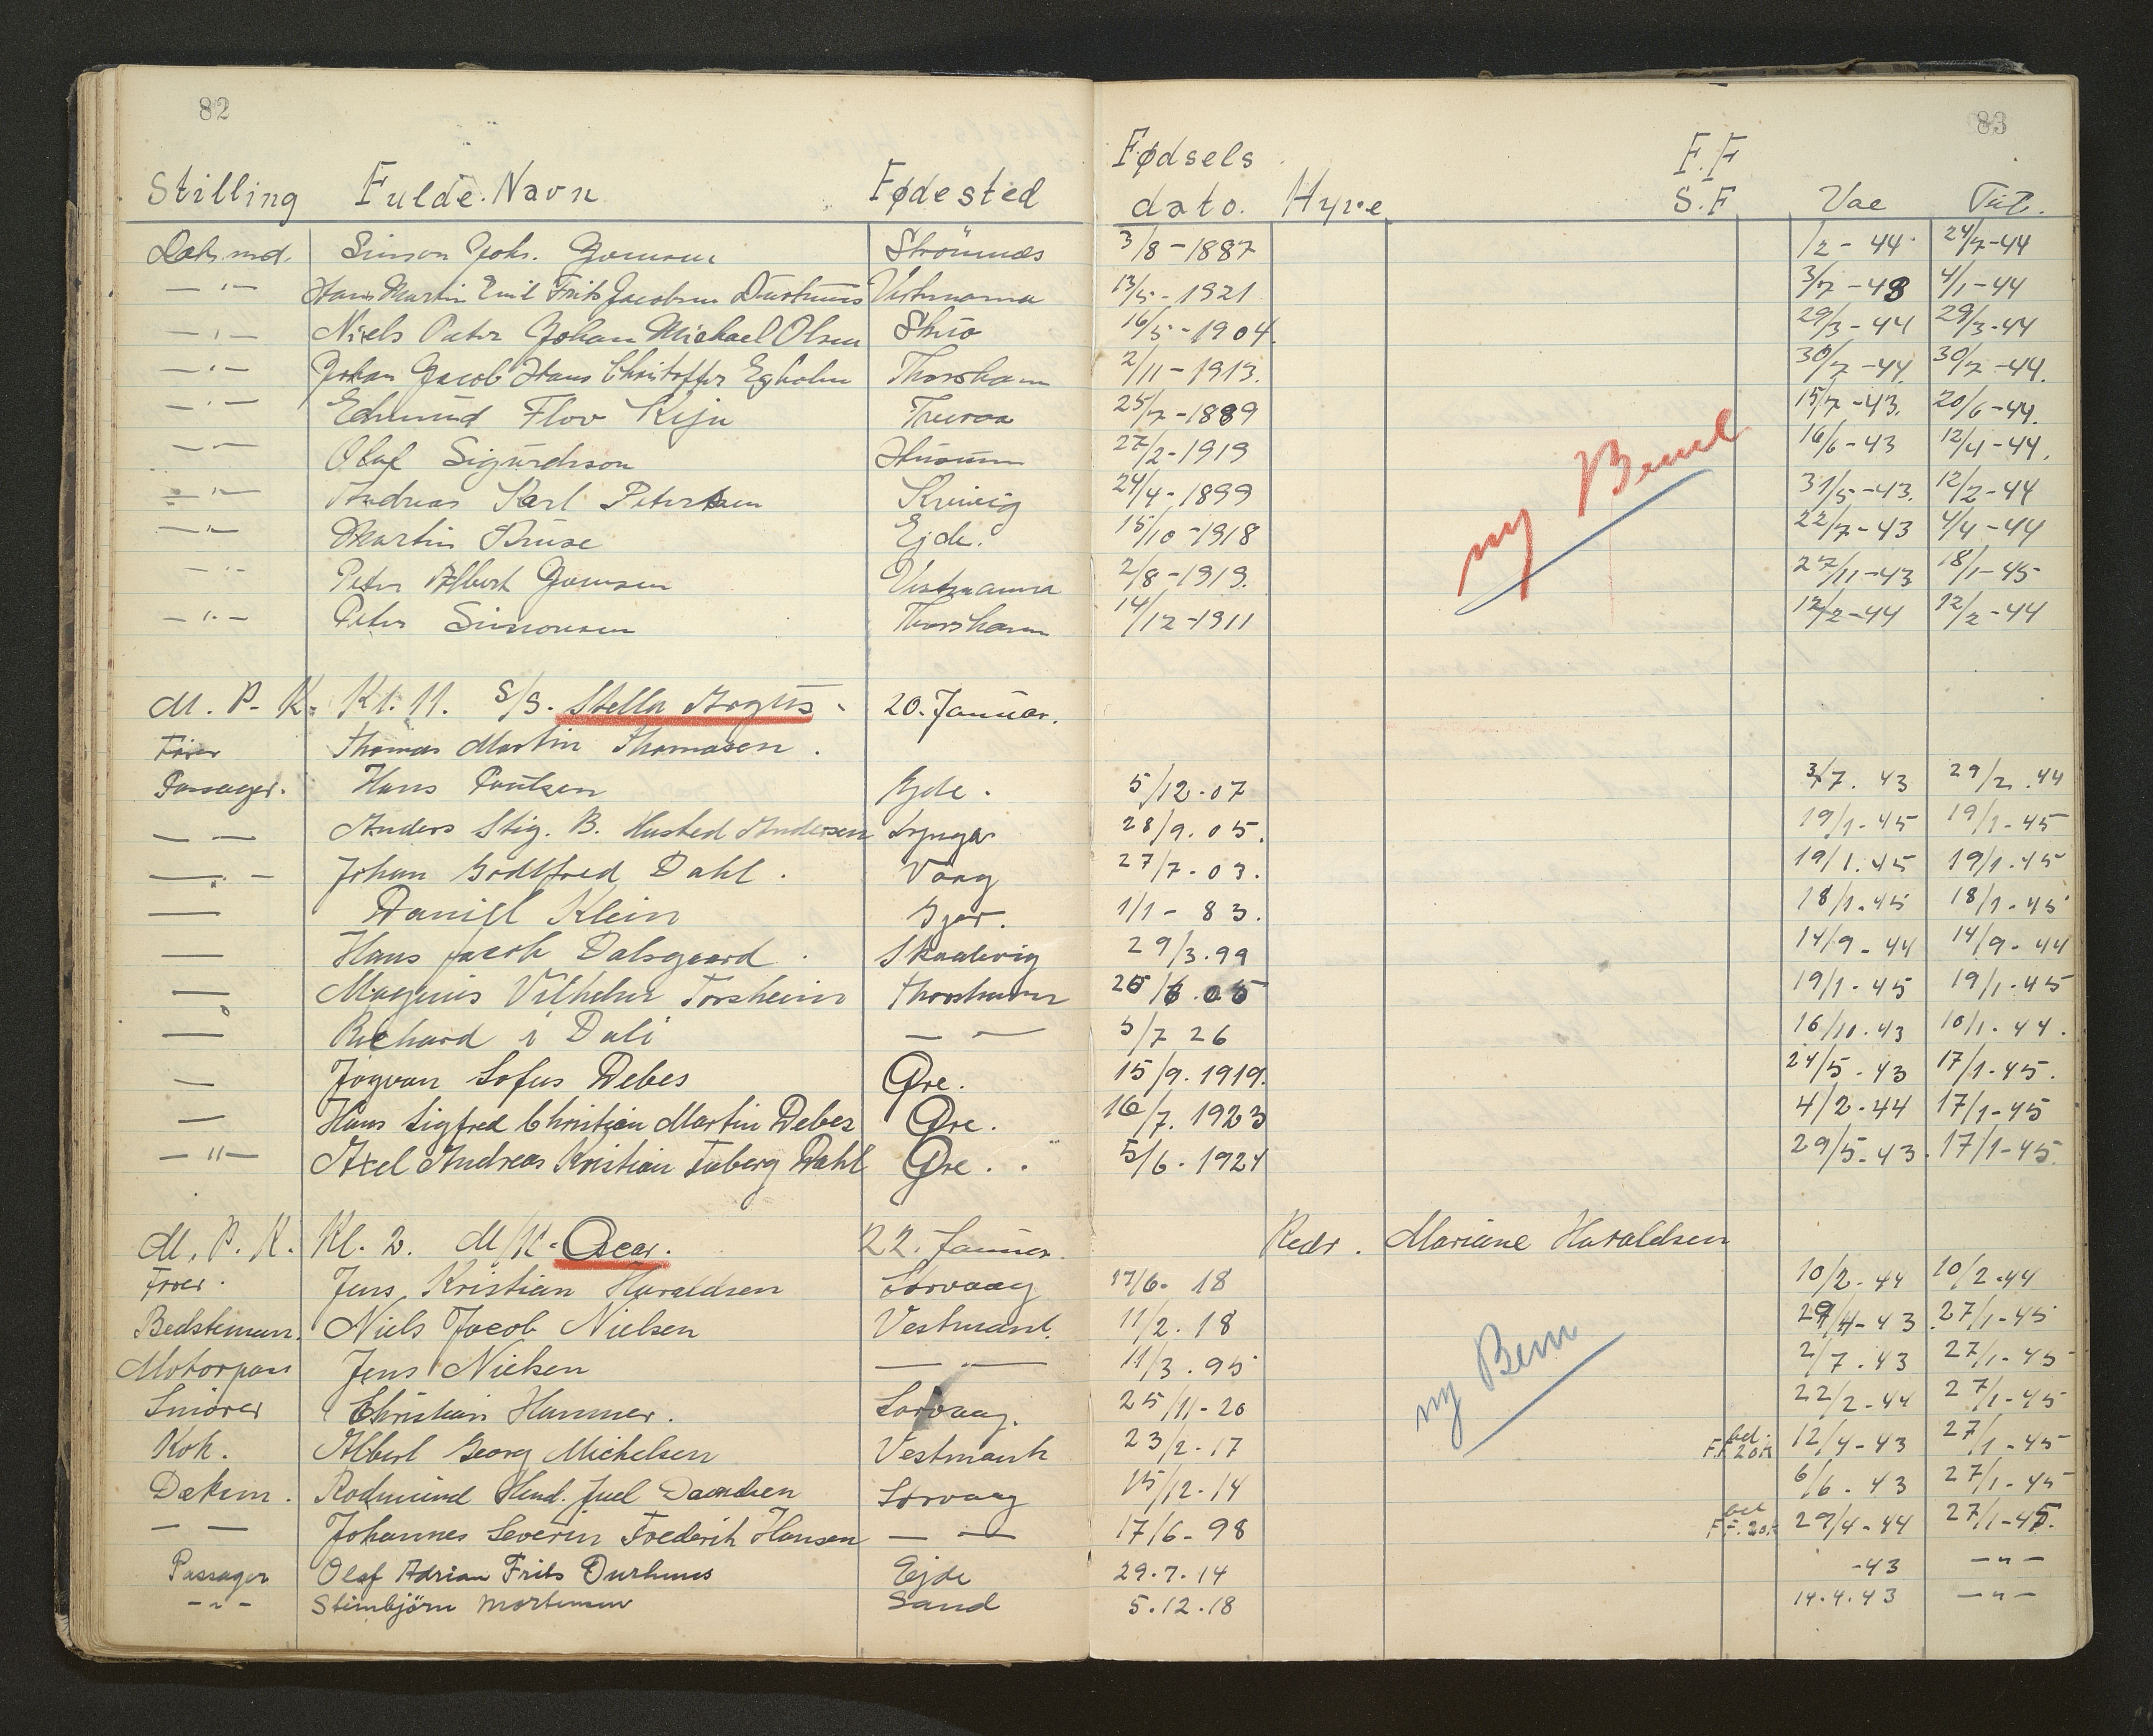 82
83
Stilling Fulde Navn Fødested Fødsels dato. Hyre F.F S.F Vac Tub.
Dæksmd. Simon Johs. Joensen Strömnæs 3/8-1887 /2-44 24/7-44
-"- Hans Martin Emil Frits Jacobsen Durhuus Vestmanna 13/5-1921 3/7-43 4/1-44
-"- Niels Peter Johan Michael Olsen Skuö 16/5-1904. 29/3-44 29/3-44
-"- Johan Jacob Hans Christoffer Egholm Thorshavn 2/11-1913. 30/7-44. 30/7-44.
-"- Edmund Flov Kiju 25/7-1889 15/7-43. 20/6-44.
-"- Olaf Sigurdsson Husum 27/2-1919 16/6-43 12/4-44.
-"- Andreas Karl Petersen Kvivig 24/4-1899 31/5-43. 12/2-44
-"- Martin Eide. 15/10-1918 22/7-43 4/4-44
-"- Peter Albert Joensen Vestmanna 2/8-1919. 27/11-43 18/1-45
-"- Peter Simonsen Thorshavn 14/12-1911 12/2-44 12/2-44
ny
M. P. K. Kl. 11. S/S. Stella Argus. 20. Januar.
Förer Thomas Martin Thomasen.
Passager. Hans Poulsen Ejde. 5/12.07 3/7.43 29/2.44
— — Anders Stig. B. Husted Andersen Lynge 28/9.05. 19/1-45 19/1-45
— - Johan Godtfred Dahl. Vaag 27/7.03. 19/1.45 19/1.45
— Daniel Klein Gjov. 1/1-83. 18/1.45 18/1-45
— Hans Jacob Dalsgaard. Skaalevig 29/3.99 14/9-44 14/9-44
— Magnus Vilhelm Torsheim Thorshavn 26/6.05 19/1-45 19/1-45
— Richard i Dali — — 5/7 26 16/10.43 10/1.44.
— Jógvan Sofus Debes Øre. 15/9.1919. 24/5-43 17/1-45.
— Hans Sigfred Christian Martin Debes Øre. 16/7.1923 4/2-44 17/1-45
-"- Axel Andreas Kristian Toberg Dahl Øre. 5/6.1924 29/5-43. 17/1-45.
M. P. K. Kl. 2. M/K. Acar. 22. Januar. Redr. Mariane Haraldsen
Förer. Jens Kristian Haraldsen Sorvaag 17/6-18 10/2-44 10/2-44
Bedsteman. Niels Jacob Nielsen Vestmanh. 11/2.18 29/4-43. 27/1-45
Motorpas Jens Nielsen — — 11/3.95 2/7.43 27/1-45
Smörer Christian Hammer. Sorvaag. 25/11-20 22/2-44 27/1-45
Kok. Albert Georg Michelsen Vestmanh 23/2.17 bet. F.F. 20 12/4-43 27/1-45
Dæksm. Rodmund Hend. Juel Davidsen Sorvaag 15/12.14 6/6.43 27/1-45
— — Johannes Severin Frederik Hansen — — 17/6-98 bet F.F. 20 29/4-44 27/1-45.
Passager Olaf Adrian Frits Durhuus Ejde 29.7.14 -43 -"-
-"- Steinbjörn Mortensen Sand 5.12.18 14.4.43 -"-
ny